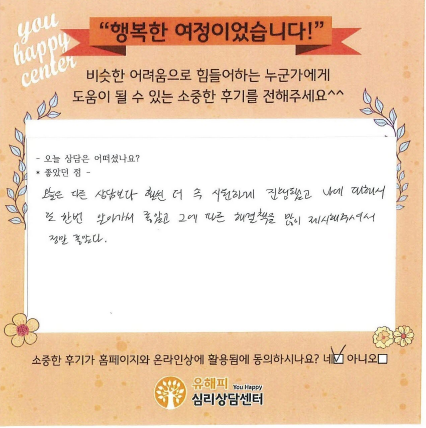 you
happy
center
“행복한 여정이었습니다!”
비슷한 어려움으로 힘들어하는 누군가에게
도움이 될 수 있는 소중한 후기를 전해주세요^^
- 오늘 상담은 어떠셨나요?
* 좋았던 점 -
오늘은 다른 상담보다 훨씬 더 속 시원하게 진행됐고 나에 대해서
또 한번 알아가서 좋았고 그에 따른 해결책을 많이 제시해주셔서
정말 좋았다.
소중한 후기가 홈페이지와 온라인상에 활용됨에 동의하시나요? 네☑ 아니오□
유해피 You Happy
심리상담센터